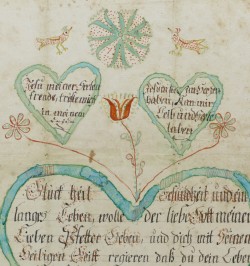 Jesu meiner Seelen
freude, tröste mich
in meinem
haben, Kan mir
Leib und Seel
laben
Glück Heil
Schuldheit und ein
langes Leben, wolle der liebe Gott meinen
Lieben Pfetter Geben, und dich mitt Seinem
Heiligen Geist regieren daß du dein Leben